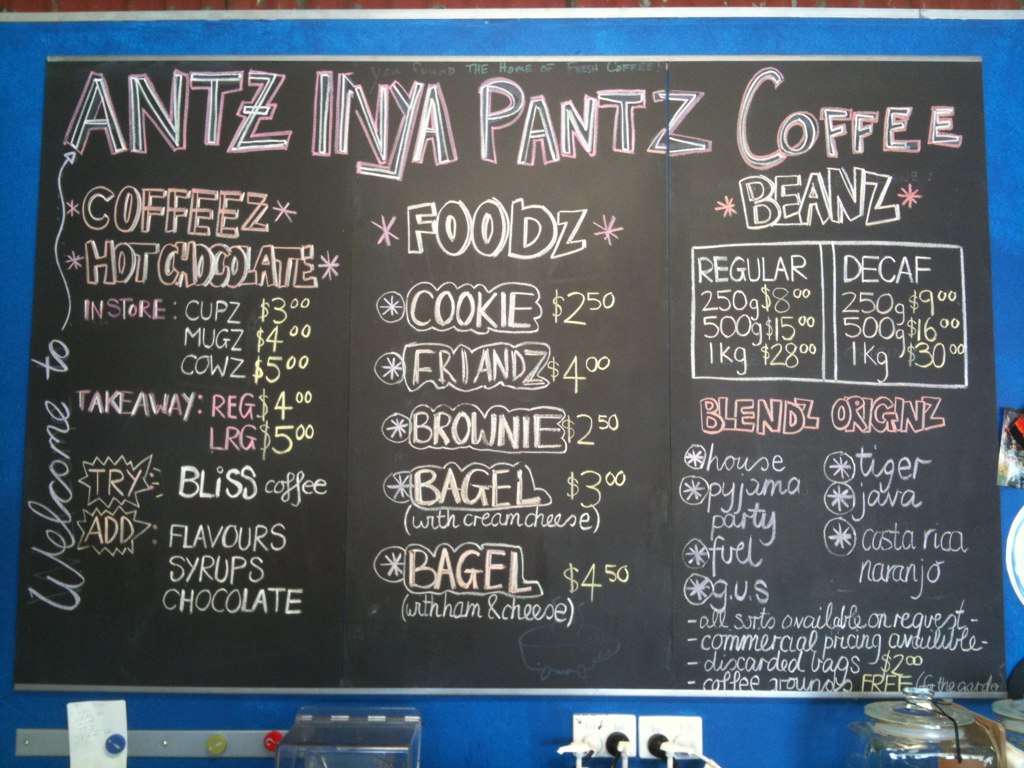 You FOUND THE HOME OF FRESH COFFEE!
ANTZ INYA PANTZ COFFEE
Welcome to
*COFFEEZ*
*HOT CHOCOLATE*
IN STORE: CUPZ $3.00
MUGZ $4.00
COWZ $5.00
TAKEAWAY: REG. $4.00
LRG $5.00
TRY: BLISS coffee
ADD: FLAVOURS
SYRUPS
CHOCOLATE
* FOODZ *
* COOKIE $2.50
* FRIANDZ $4.00
* BROWNIE $2.50
* BAGEL $3.00
(with cream cheese)
* BAGEL $4.50
(with ham & cheese)
* BEANZ *
REGULAR
250g $8.00
500g $15.00
1kg $28.00
DECAF
250g $9.00
500g $16.00
1kg $30.00
BLENDZ
* house
* pyjama
party
* fuel
* g.u.s
ORIGINZ
* tiger
* java
* costa rica
naranjo
- all sorts available on request -
- commercial pricing available -
- discarded bags $2.00
- coffee grounds FREE (for the garden